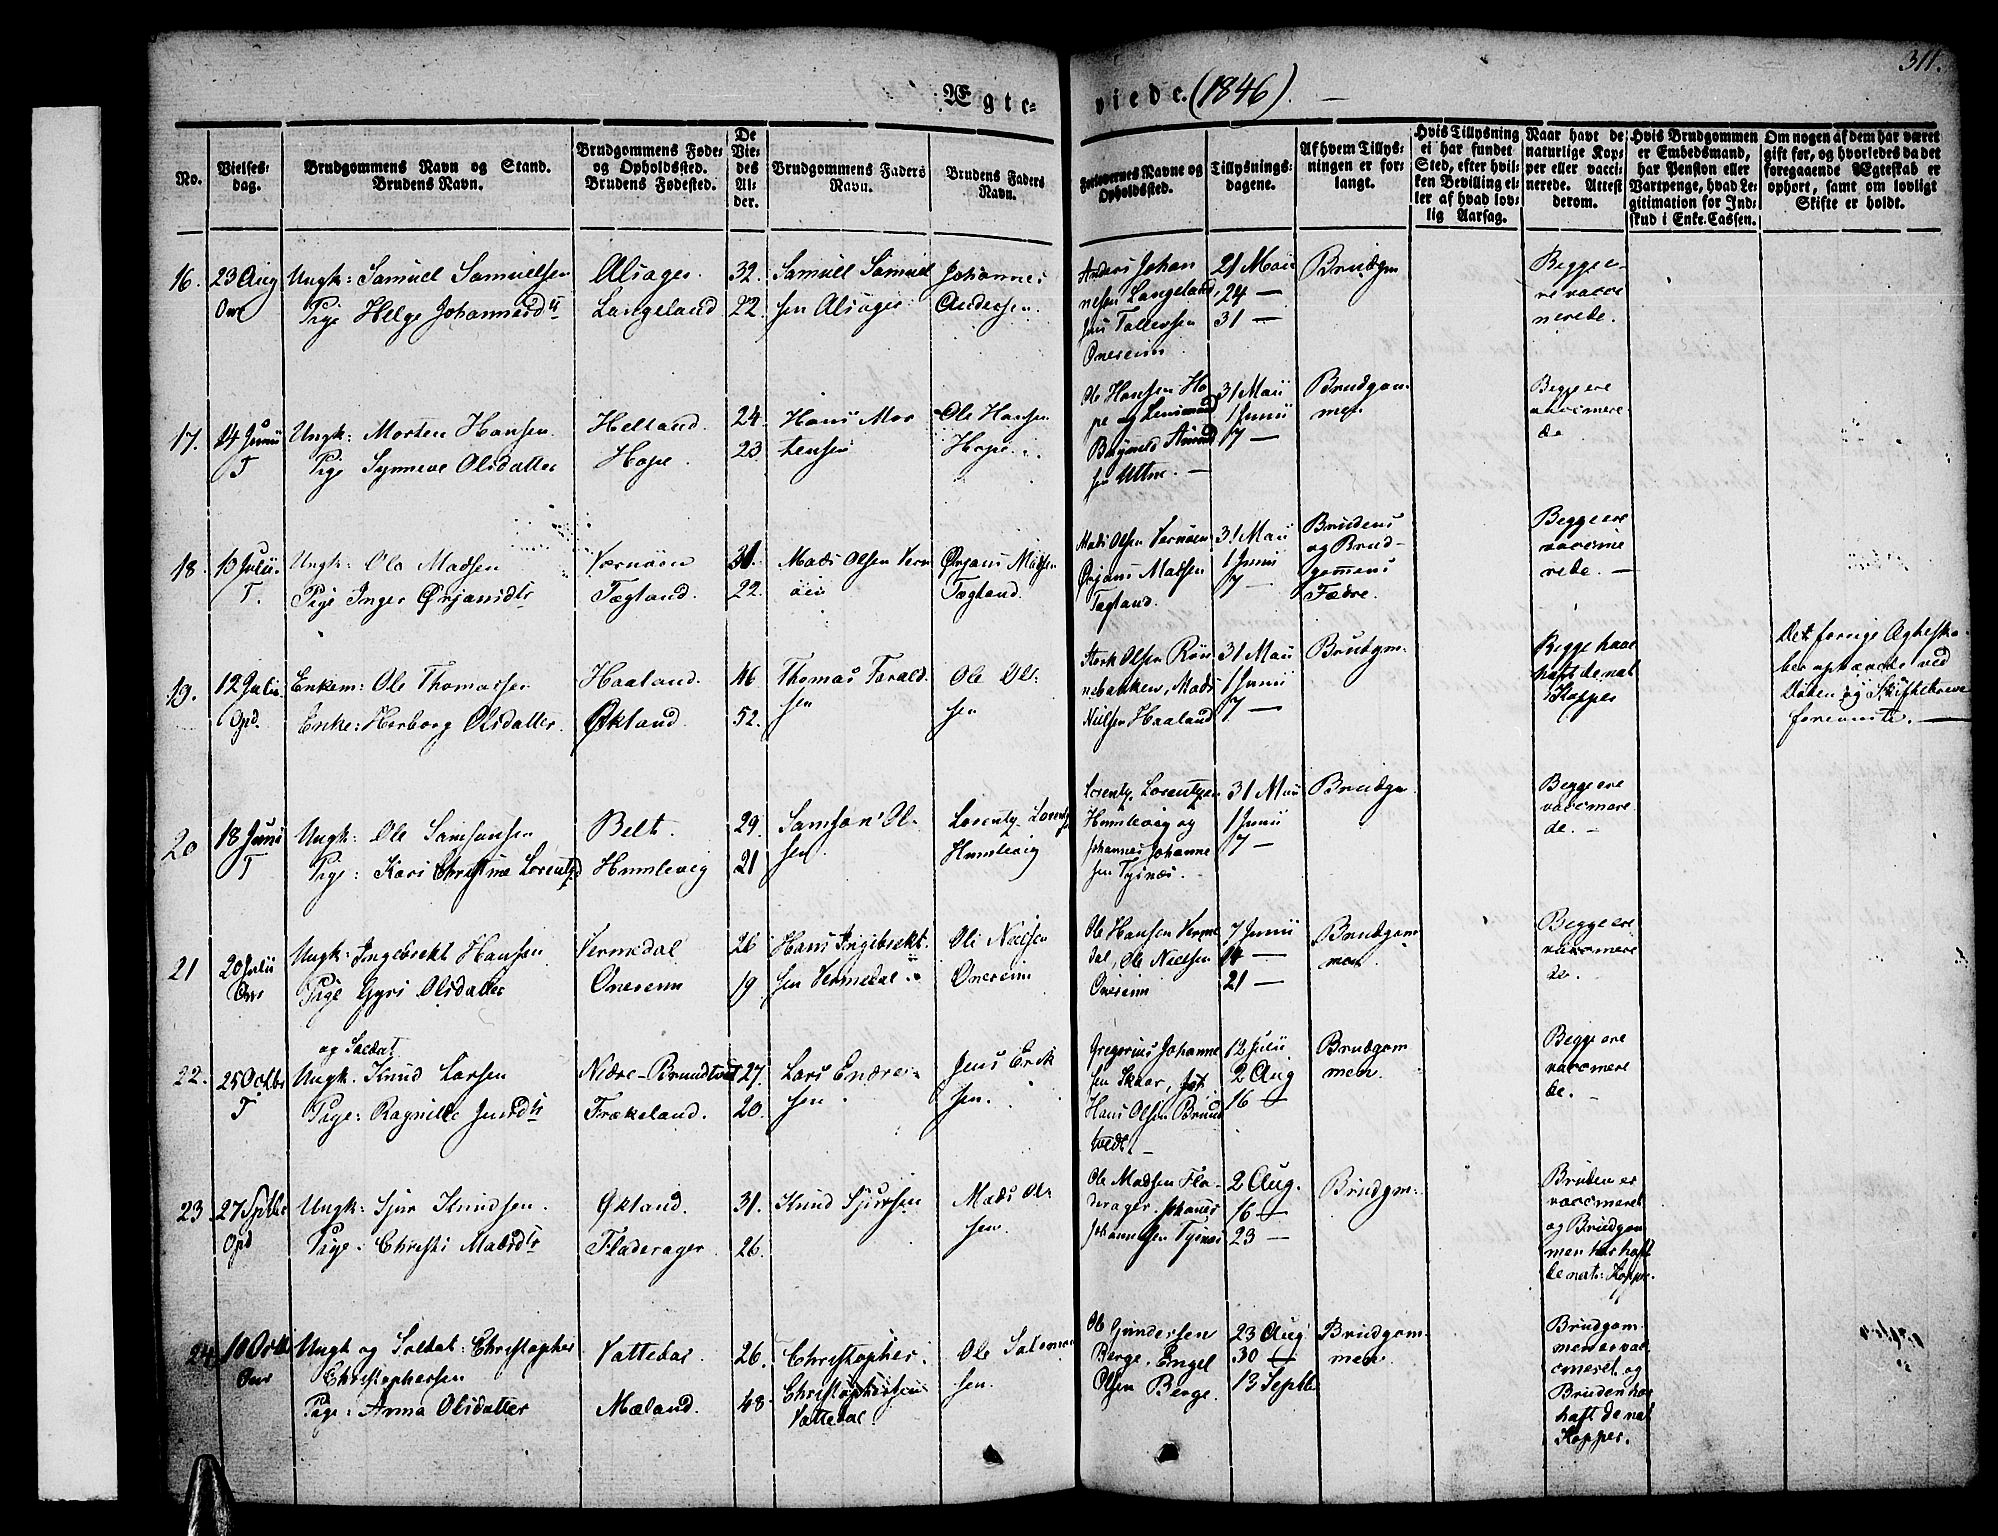 311.
Ægte-
viede. (1846). —
No.
Vielses-
dag.
Brudgommens Navn og Stand.
Brudens Navn.
Brudgommens Føde-
og Opholdssted.
Brudens Fødested.
De
Vie-
des
Al-
der.
Brudgommens Faders
Navn.
Brudens Faders
Navn.
Forlovernes Navne og
Opholdssted.
Tillysnings-
dagene.
Af hvem Tillys-
ningen er for-
langt.
Hvis Tillysning
ei har fundet
Sted, efter hvil-
ken Bevilling el-
ler af hvad lov-
lig Aarsag.
Naar havt de
naturlige Kop-
per eller vacci-
nerede. Attest
derom.
Hvis Brudgommen
er Embedsmand,
har Pension eller
Vartpenge, hvad Le-
gitimation for Ind-
skud i Enke-Cassen.
Om nogen af dem har været
gift før, og hvorledes da det
foregaaende Ægteskab er
ophørt, samt om lovligt
Skifte er holdt.
16.
23 Aug
Ungk: Samuel Samuelsen
Pige Helge Johannesd
Alsager
Langeland
32.
22.
Samuel Samuel
sen Alsager
Johannes
Andersen.
Anders Johan
nesen Langeland,
Jens Tollevsen
Onereim
21 Maii
24 —
31 —
Brudgm
Begge e-
re vacci
nerede.
17.
14 Junii
T
Ungk: Morten Hansen
Pige Synneve Olsdatter
Helland
Hope.
24.
23
Hans Mor
tensen
Ole Hansen
Hope
Ole Hansen Ho
pe og Lensmand
Amund
sen Uttne.
31 Maii
1 Junii
7 —
Brudgom-
men
Begge ere
vaccinere-
de
18.
13 Julii.
T.
Ungk: Ole Madsen
Pige Inger Ørjansdtr
Vernøen
Tægland.
31.
22.
Mads Olsen Vern
øen
Ørjans Madsen
Tægland.
Mads Olsen Vernøen
Ørjans Madsen
Tægland.
31 Maii
1 Junii
7 —
Brudens
og Brud-
gommens
Fædre.
Begge ere
vaccine
rede. —
19.
12 Julii.
Opd.
Enkem: Ole Thomassen
Enke: Herborg Olsdatter.
Haaland.
Økland.
46
52.
Thomas Torald
sen
Ole Ol-
sen
Stork Olsen Røn
nebakken, Mads
Nielsen Haaland
31 Maii
1 Junii
7 —
Brudgm.
Begge have
haft de nat
Kopper
Det forrige Ægteska-
ber ophævede ved
Døden og Skiftebreve
foreviiste. —
20
18 Junii
T
Ungk: Ole Samsonsen
Pige: Kari Christine Lorentzd
Belt.
Humlevig
29.
21
Samson Ol-
sen.
Lorentz Lorentz
Humlevig
Lorentz Lorentzen
Humlevig og
Johannes Johanne
sen Tysnes.
31 Maii
1 Junii
7 —
Brudgm.
Begge ere
vaccinere-
de. —
21
20 Julii
Ungk: Ingebrekt Hansen
Pige Gyri Olsdatter
Vermedal
Onereim
26
19
Hans Ingebrekt-
sen Vermedal
Ole Nielsen
Onereim
Ole Hansen Verme
dal, Ole Nielsen
Onereim
7 Junii
14 —
21 —
Brudgom
men
Begge ere
vaccinere
de.
22.
25 Octbr
T
og Soldat
Ungk. Knud Larsen
Pige: Ragnilde Jensd
Nedre-Brundtvet
Frækeland.
27.
20.
Lars Endre-
sen
Jens Erik
sen.
Gregorius Johanne
sen Skaar,
Hans Olsen Brund
tvedt —
12 Julii
2 Aug
16 —
Brudgom
men.
Begge ere
vaccinere
de. —
23.
27 Septbr
Opd
Ungk: Sjur Knudsen.
Pige: Christi Madsdtr
Økland.
Fladerager.
31.
26.
Knud Sjursen
Mads Ol-
sen.
Ole Madsen Fla-
derager Johannes
Johannesen Tysnes
2 Aug.
16 —
23 —
Brudgm.
Bruden er
vaccineret
og Brudgom
men har haft
de nat: Kopper.
24.
10 Octbr
Ungk og Soldat: Christopher
Christophersen
Pige: Anna Olsdatter
Vattedal
Mæland.
26.
48.
Christopher
Christophersen
Vattedal.
Ole Salomon
sen.
Ole Gundersen
Berge, Engel
Olsen Berge.
23 Aug
30 —
13 Septbr
Brudgom
men.
Brudgom
men er vac-
cineret og
Bruden har
haft de nat
Kopper.